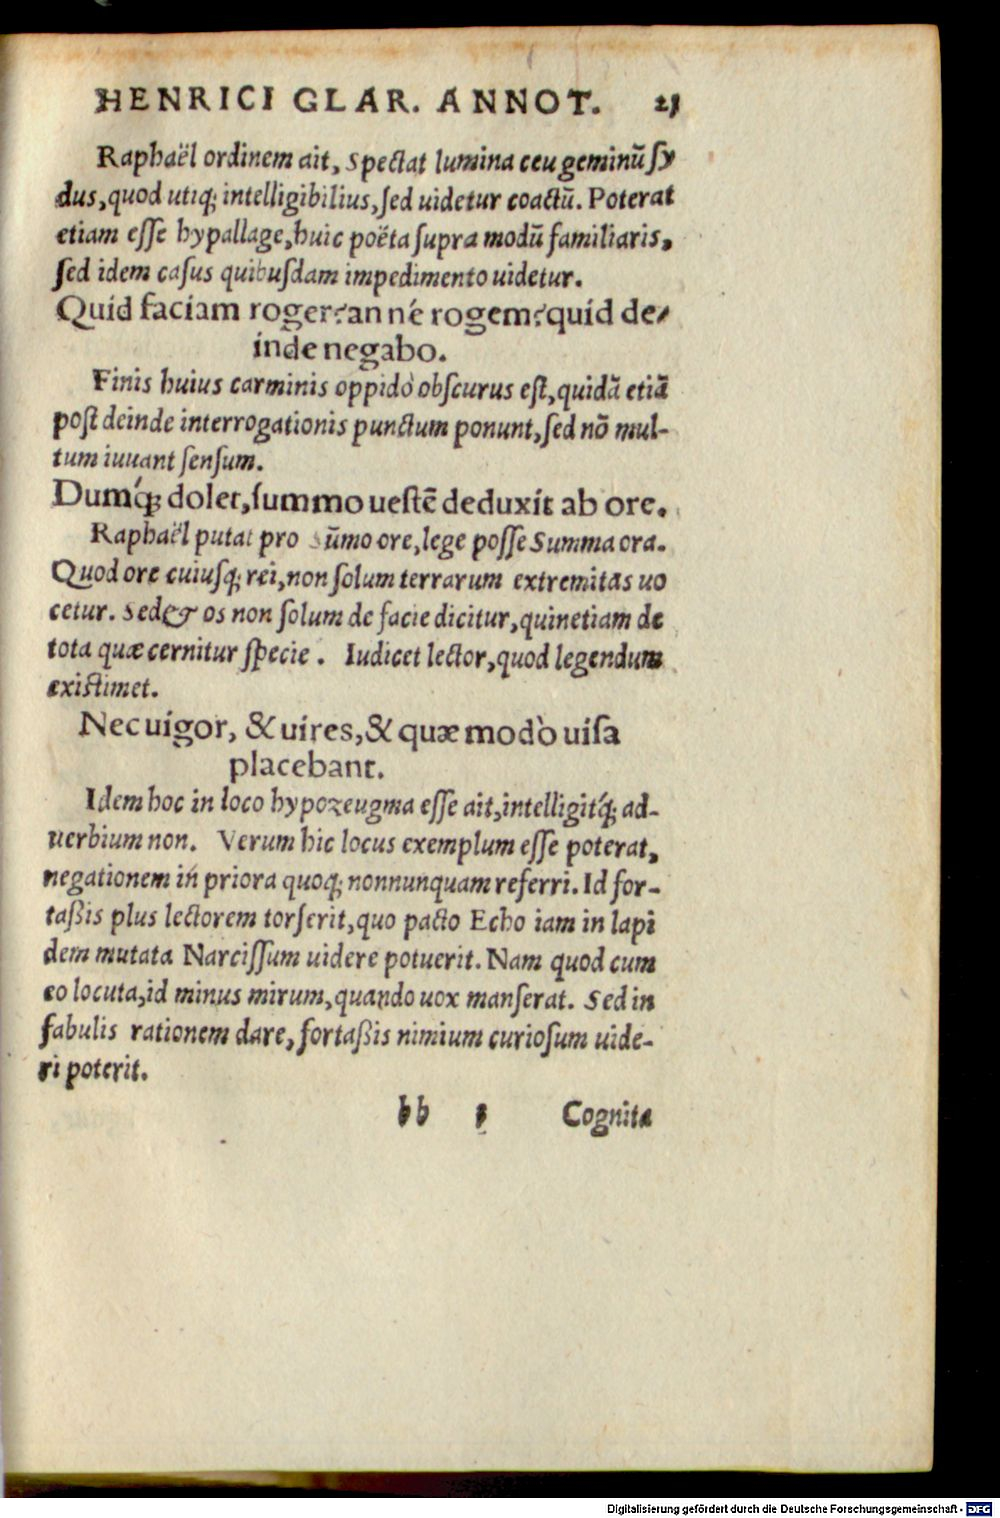 HENRICI GLAR. ANNOT. 25
Raphaël ordinem ait, spectat lumina ceu geminū ſy
dus, quod utiq; intelligibilius, ſed uidetur coactū. Poterat
etiam eſſe hypallage, huic poëta ſupra modū familiaris,
ſed idem caſus quibuſdam impedimento uidetur.
Quid faciam roger? an né rogem? quid de⸗
inde negabo.
Finis huius carminis oppidò obſcurus eſt, quidā etiā
poſt deinde interrogationis punctum ponunt, ſed nō mul-
tum iuuant ſenſum.
Dumq́; dolet, ſummo ueſtē deduxit ab ore.
Raphaël putat pro Sūmo ore, lege poſſe Summa ora.
Quod ore cuiuſq; rei, non ſolum terrarum extremitas uo
cetur. Sed & os non ſolum de facie dicitur, quinetiam de
tota quæ cernitur ſpecie. Iudicet lector, quod legendum
existimet.
Nec uigor, & uires, & quæ modò uiſa
placebant.
Idem hoc in loco hypozeugma eſſe ait, intelligitq́; ad-
uerbium non. Verum hic locus exemplum eſſe poterat,
negationem in priora quoq; nonnunquam referri. Id for-
taßis plus lectorem torſerit, quo pacto Echo iam in lapi
dem mutata Narciſſum uidere potuerit. Nam quod cum
eo locuta, id minus mirum, quando uox manſerat. Sed in
fabulis rationem dare, fortaßis nimium curioſum uide-
ri poterit.
bb Cognita
Digitalisierung gefördert durch die Deutsche Forschungsgemeinschaft - DFG